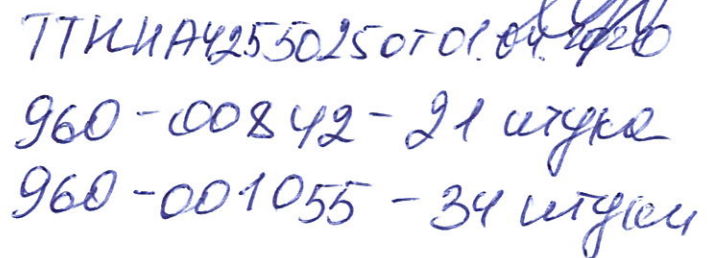 ТТН НА4255025 от 01.04.2020
960-00842-21 штука
960-001055-34 штуки